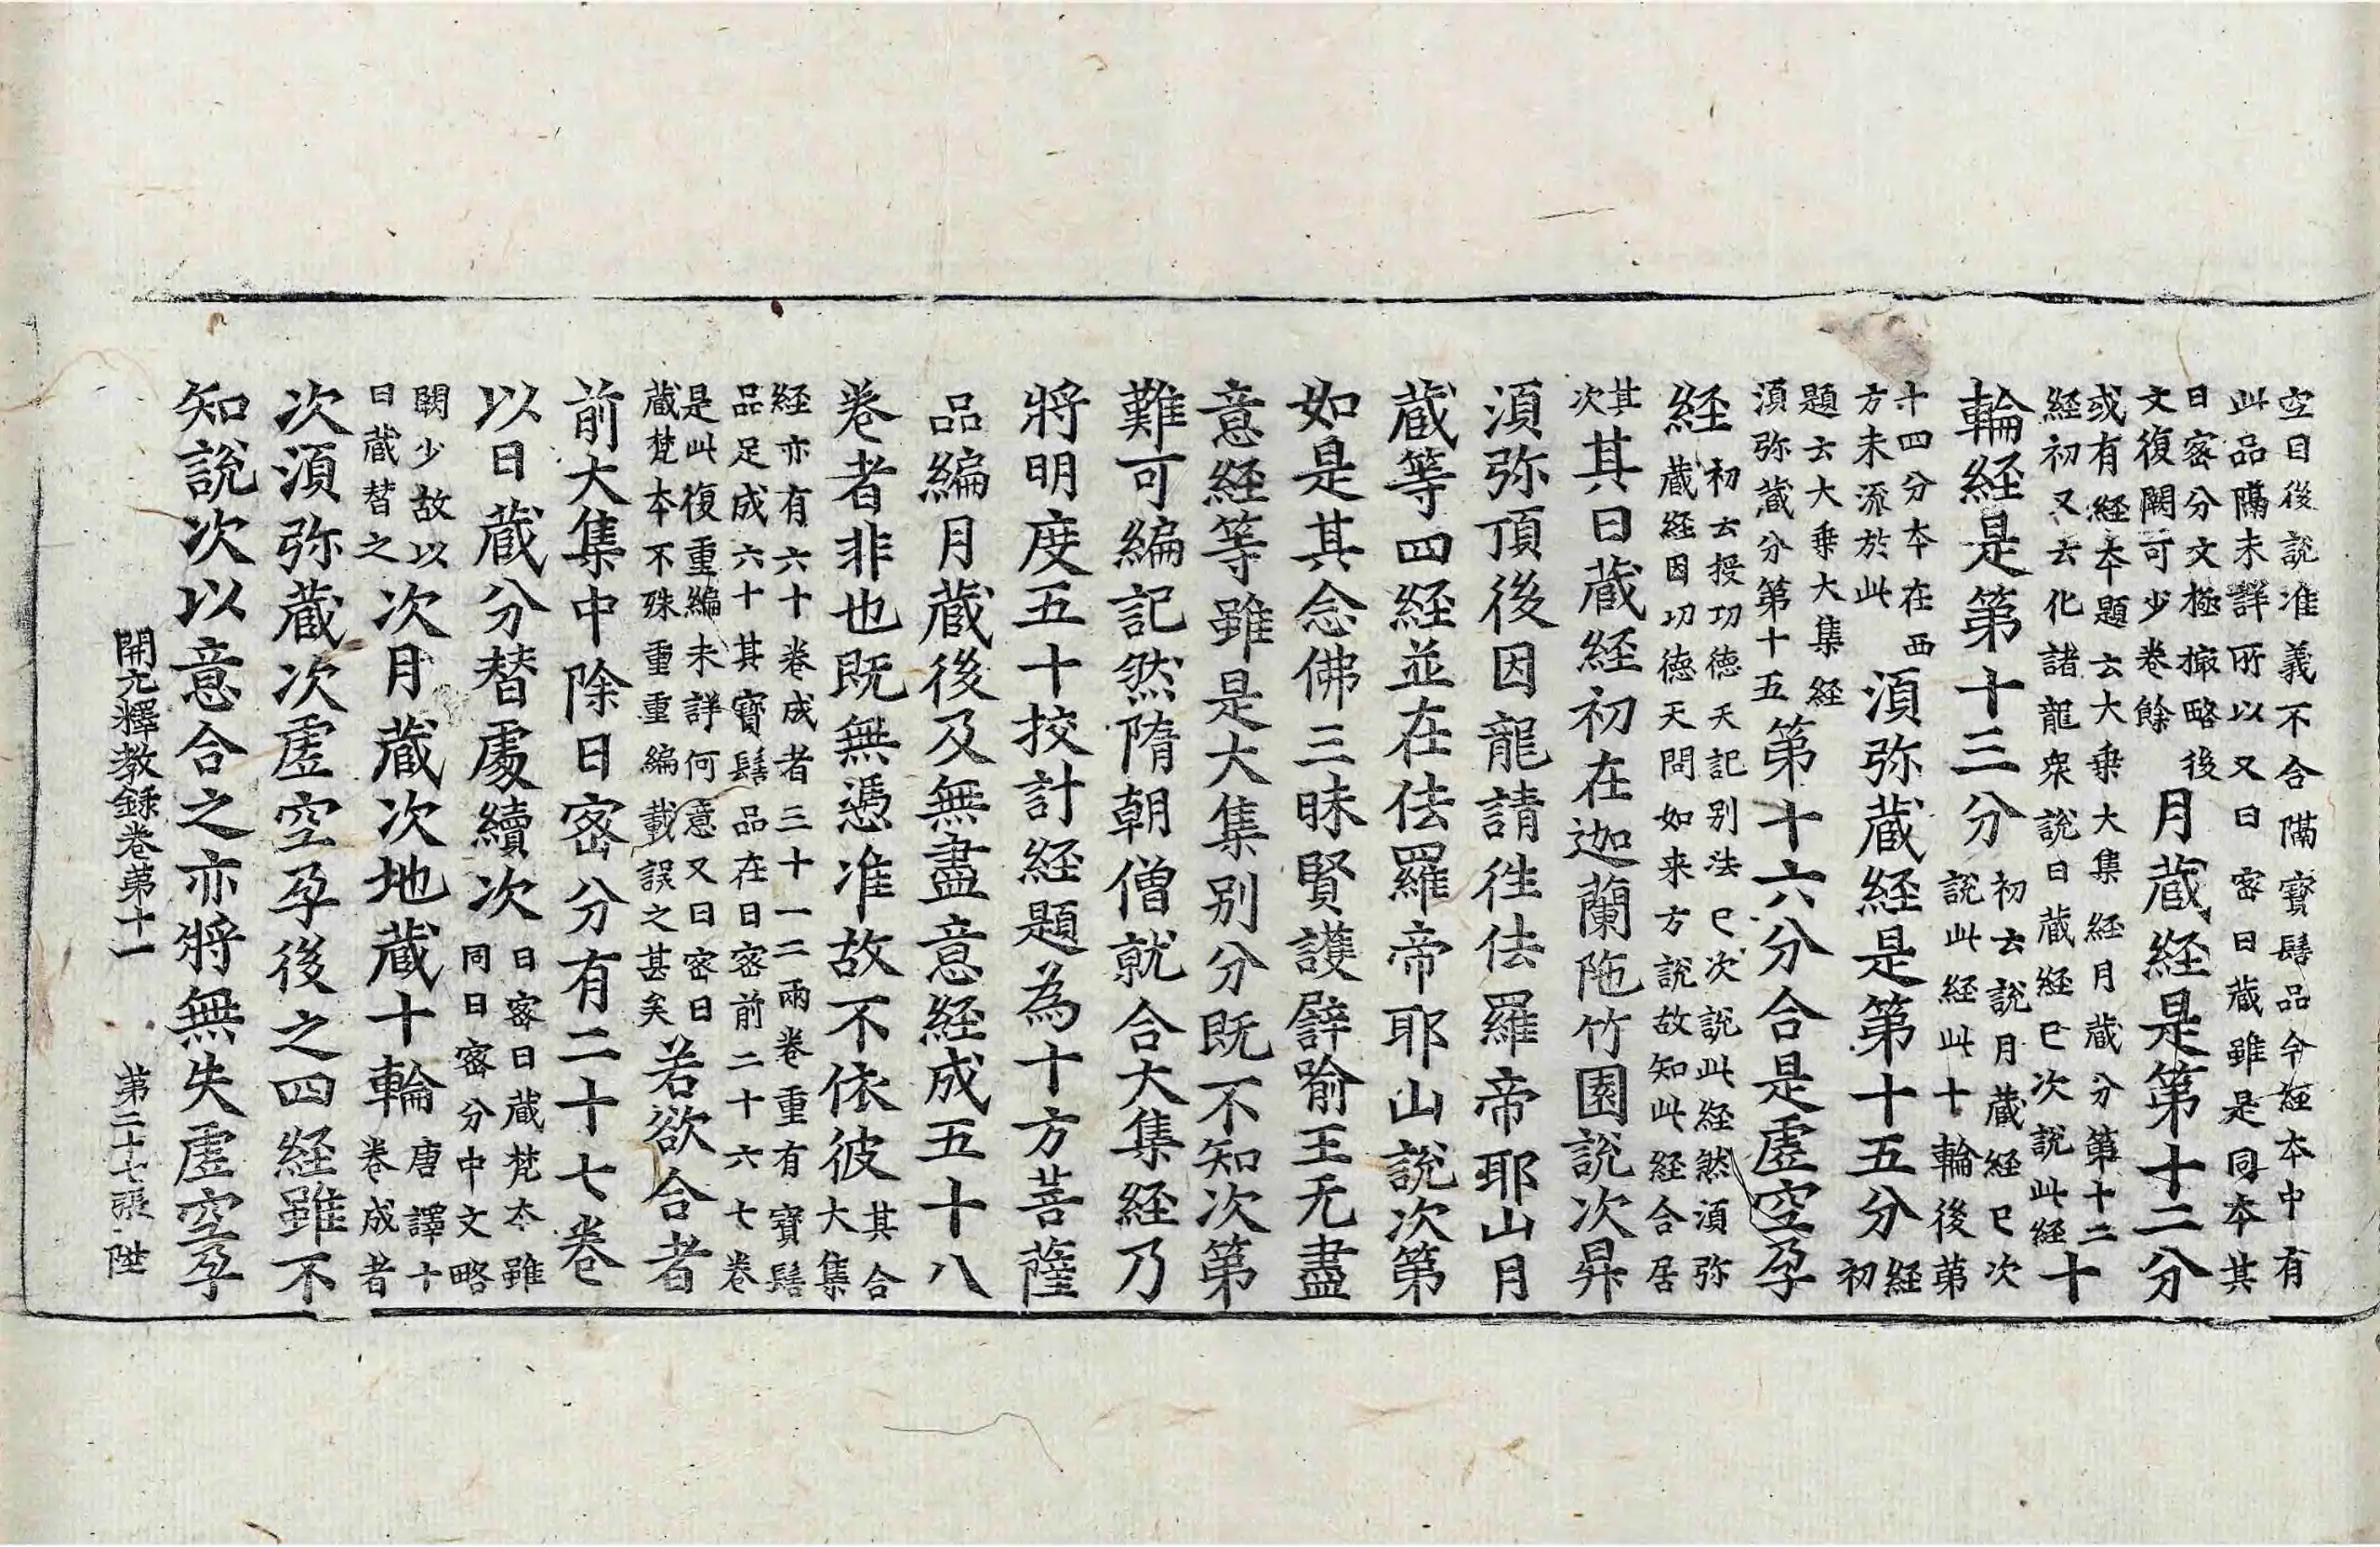 空目後說准義不合隔寶髻品今經本中有
此品隔未詳所以又曰密日蔵雖是同夲其
日密分文極㨹略後
文復闕可少卷餘
月蔵経是第十二分
或有経夲題云大乗大集経月蔵分第十二
経初又云化諸龍衆說日蔵経已次說此経
十
輪経是第十三分
初云說月蔵経已次
說此経此十輪後第
十四分夲在西
方未流於此
湏弥蔵経是第十五分
経
初
題云大乗大集経
湏弥蔵分第十五
第十六分合是虗空孕
経
初云授功徳天記别法已次說此経然湏弥
蔵経因功徳天問如来方說故知此経合居
其
次
其日蔵経初在迦蘭陁竹園說次昇
湏弥頂後因龍請徃佉羅帝耶山月
蔵等四経並在佉羅帝耶山說次第
如是其念佛三昧賢護譬喻王无盡
意経等雖是大集别分既不知次第
難可編記然隋朝僧就合大集経乃
將明度五十挍計経題為十方菩薩
品編月蔵後及無盡意経成五十八
卷者非也既無憑准故不依彼
其合
大集
経亦有六十卷成者三十一二兩卷重有寶髻
品足成六十其寶髻品在日密前二十六七卷
是此復重編未詳何意又曰密日
蔵梵夲不殊重重編載誤之甚矣
若欲合者
前大集中除日密分有二十七卷
以日蔵分替處續次
日密日蔵梵夲雖
同日密分中文略
闕少故以
日蔵替之
次月蔵次地蔵十輪
唐譯十
卷成者
次湏弥蔵次虗空孕後之四経雖不
知說次以意合之亦將無失虗空孕
開元釋教録卷第十一　第二十七張　陞